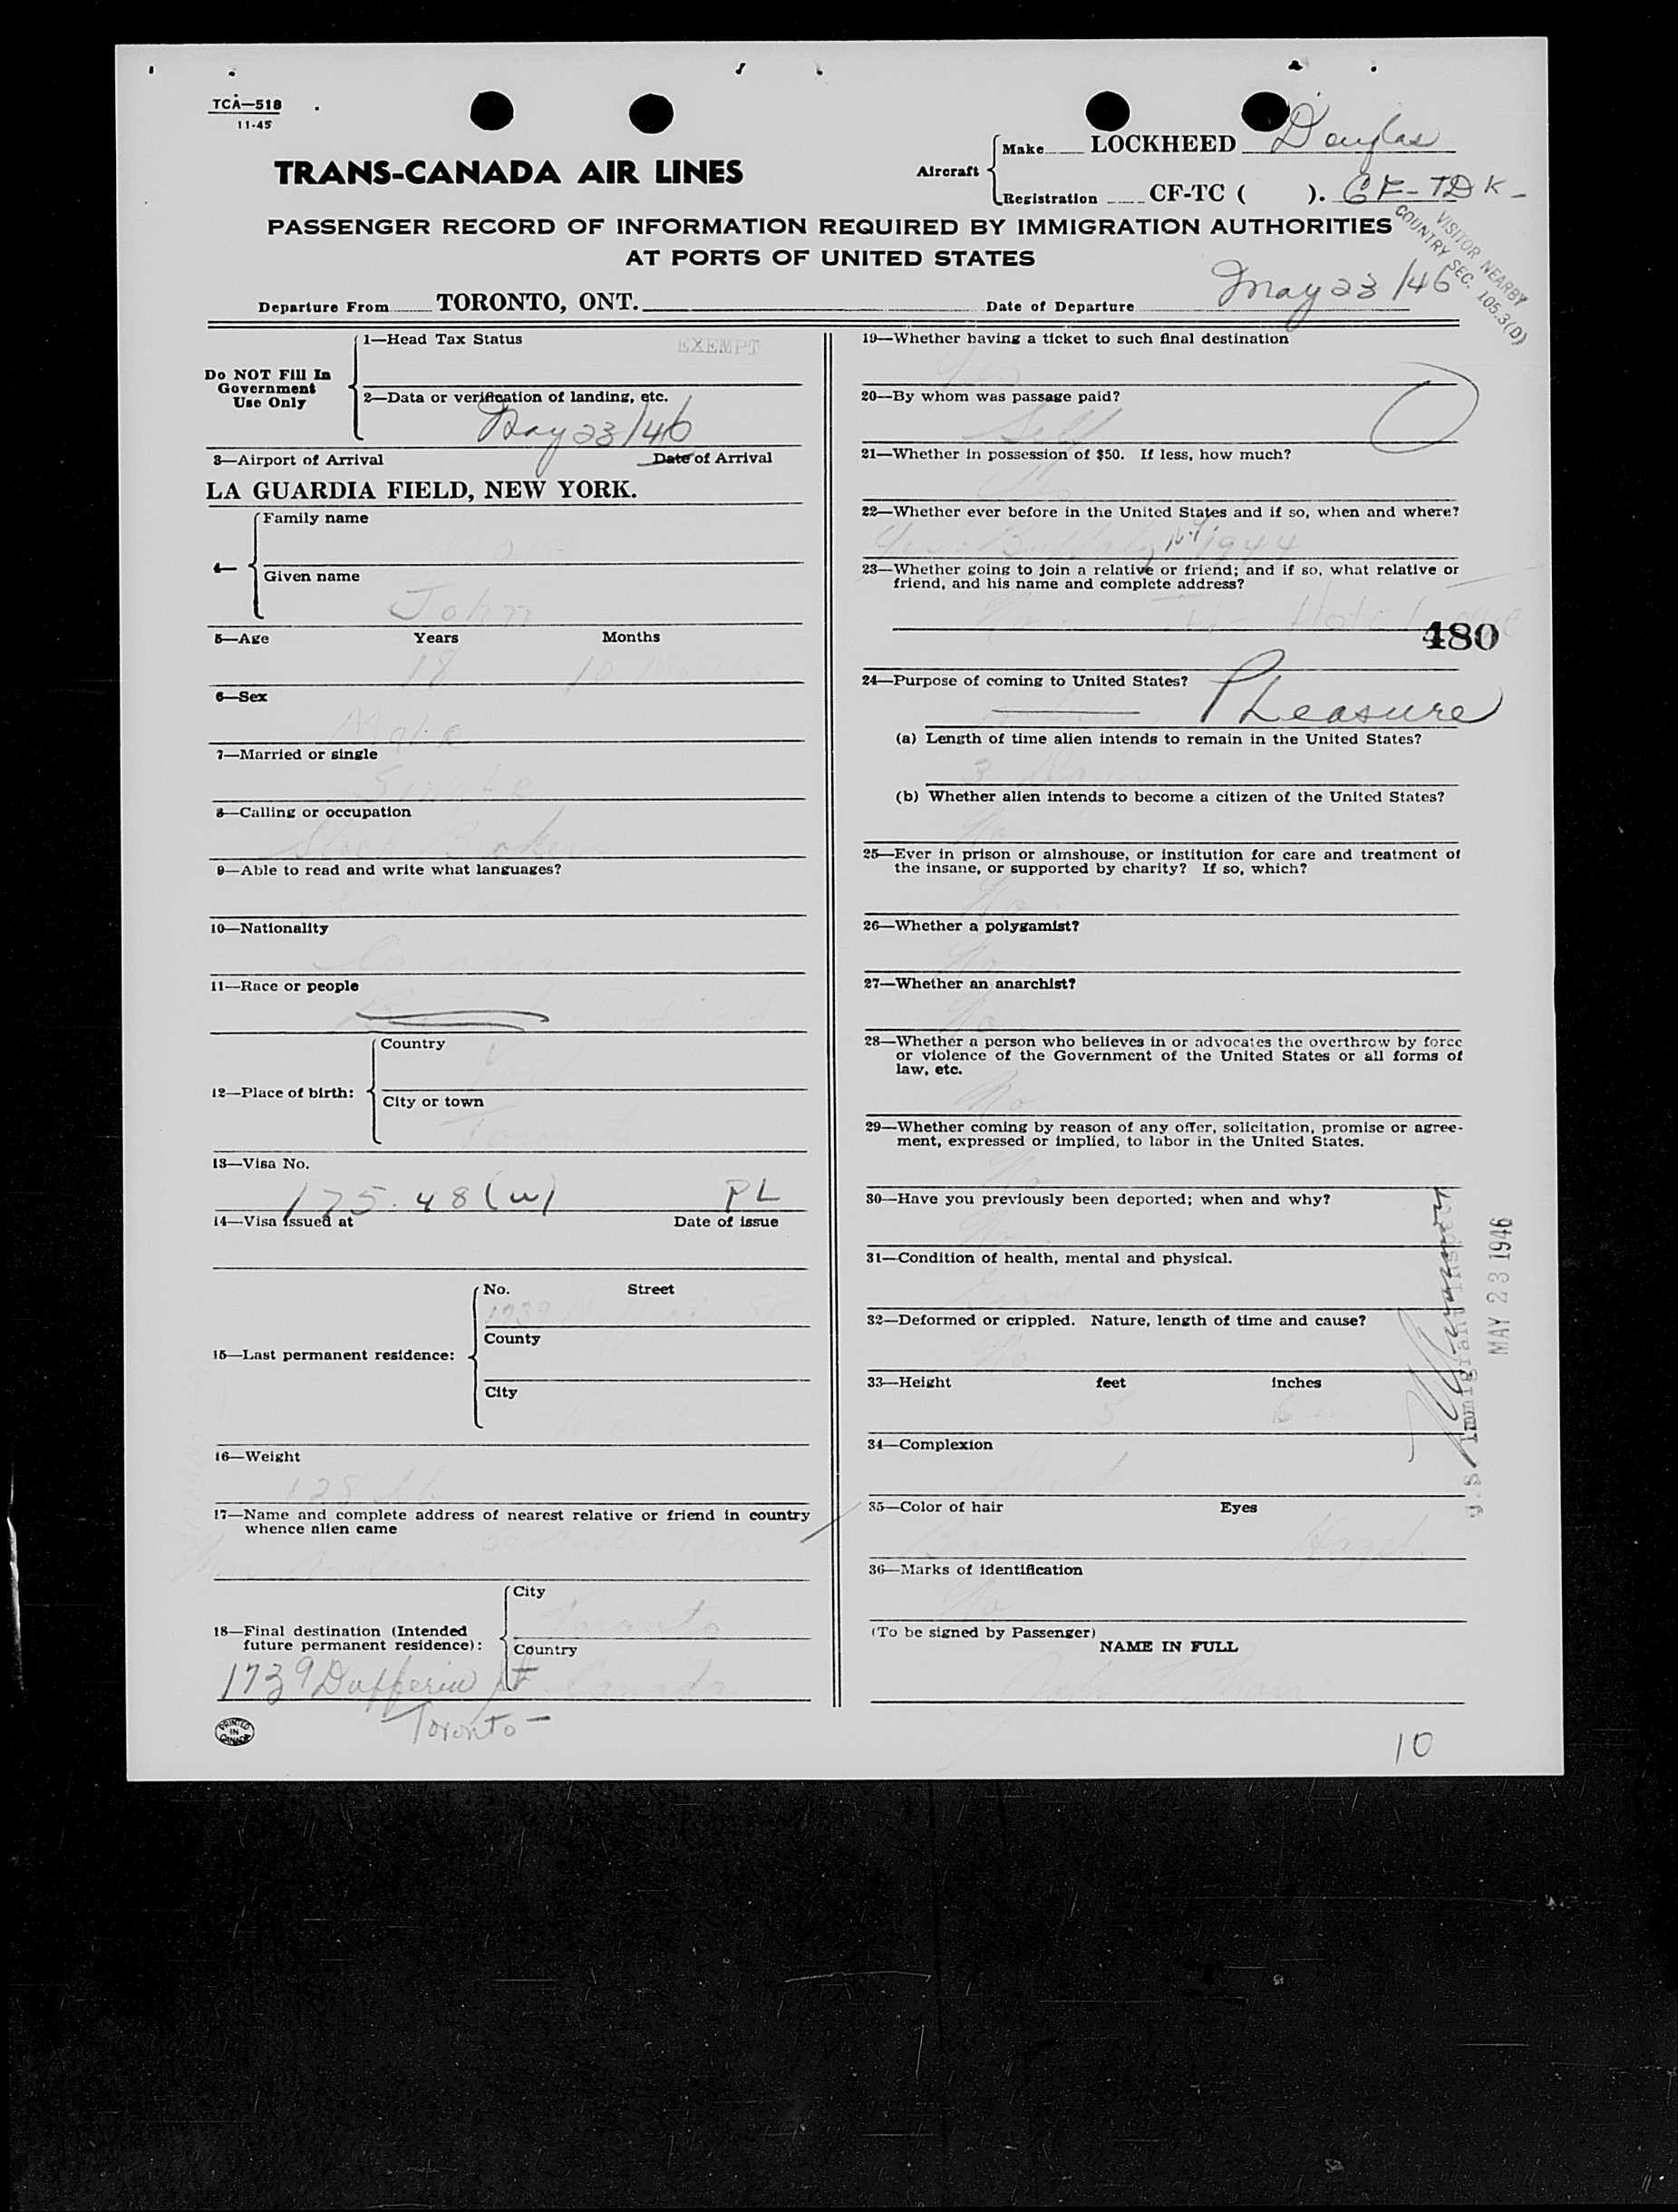 TCA—518
11-45
TRANS-CANADA AIR LINES
Aircraft
Make LOCKHEED Douglas
Registration CF-TC ( ). CF-TDK-
PASSENGER RECORD OF INFORMATION REQUIRED BY IMMIGRATION AUTHORITIES
AT PORTS OF UNITED STATES
VISITOR NEARBY
COUNTRY SEC. 105.3(D)
Departure From TORONTO, ONT. Date of Departure May 23/46
Do NOT Fill In
Government
Use Only
1—Head Tax Status EXEMPT
2—Data or verification of landing, etc.
May 23/46
3—Airport of Arrival Date of Arrival
LA GUARDIA FIELD, NEW YORK.
4— Family name
Given name
John
5—Age Years Months
18 10
6—Sex
Male
7—Married or single
Single
8—Calling or occupation
Broker
9—Able to read and write what languages?
10—Nationality
Canadian
11—Race or people
12—Place of birth:
Country
City or town
Toronto
13—Visa No.
175.48(w) PL
14—Visa issued at Date of issue
15—Last permanent residence:
No. Street
1739
County
City
16—Weight
128
17—Name and complete address of nearest relative or friend in country
whence alien came
18—Final destination (Intended
future permanent residence):
City
Toronto
Country
Canada
1739 Dufferin St
Toronto—
PRINTED
IN
CANADA
19—Whether having a ticket to such final destination
Yes
20—By whom was passage paid?
Self
21—Whether in possession of $50. If less, how much?
Yes
22—Whether ever before in the United States and if so, when and where?
Yes Buffalo N.Y 1944
23—Whether going to join a relative or friend; and if so, what relative or
friend, and his name and complete address?
No Hotel
480
24—Purpose of coming to United States?
Pleasure
(a) Length of time alien intends to remain in the United States?
3 Days
(b) Whether alien intends to become a citizen of the United States?
No
25—Ever in prison or almshouse, or institution for care and treatment of
the insane, or supported by charity? If so, which?
No
26—Whether a polygamist?
No
27—Whether an anarchist?
No
28—Whether a person who believes in or advocates the overthrow by force
or violence of the Government of the United States or all forms of
law, etc.
No
29—Whether coming by reason of any offer, solicitation, promise or agree-
ment, expressed or implied, to labor in the United States.
No
30—Have you previously been deported; when and why?
No
31—Condition of health, mental and physical.
Good
32—Deformed or crippled. Nature, length of time and cause?
No
33—Height feet inches
5 6
34—Complexion
35—Color of hair Eyes
Hazel
36—Marks of identification
No
(To be signed by Passenger)
NAME IN FULL
John
U.S. Immigrant Inspector
MAY 23 1946
10